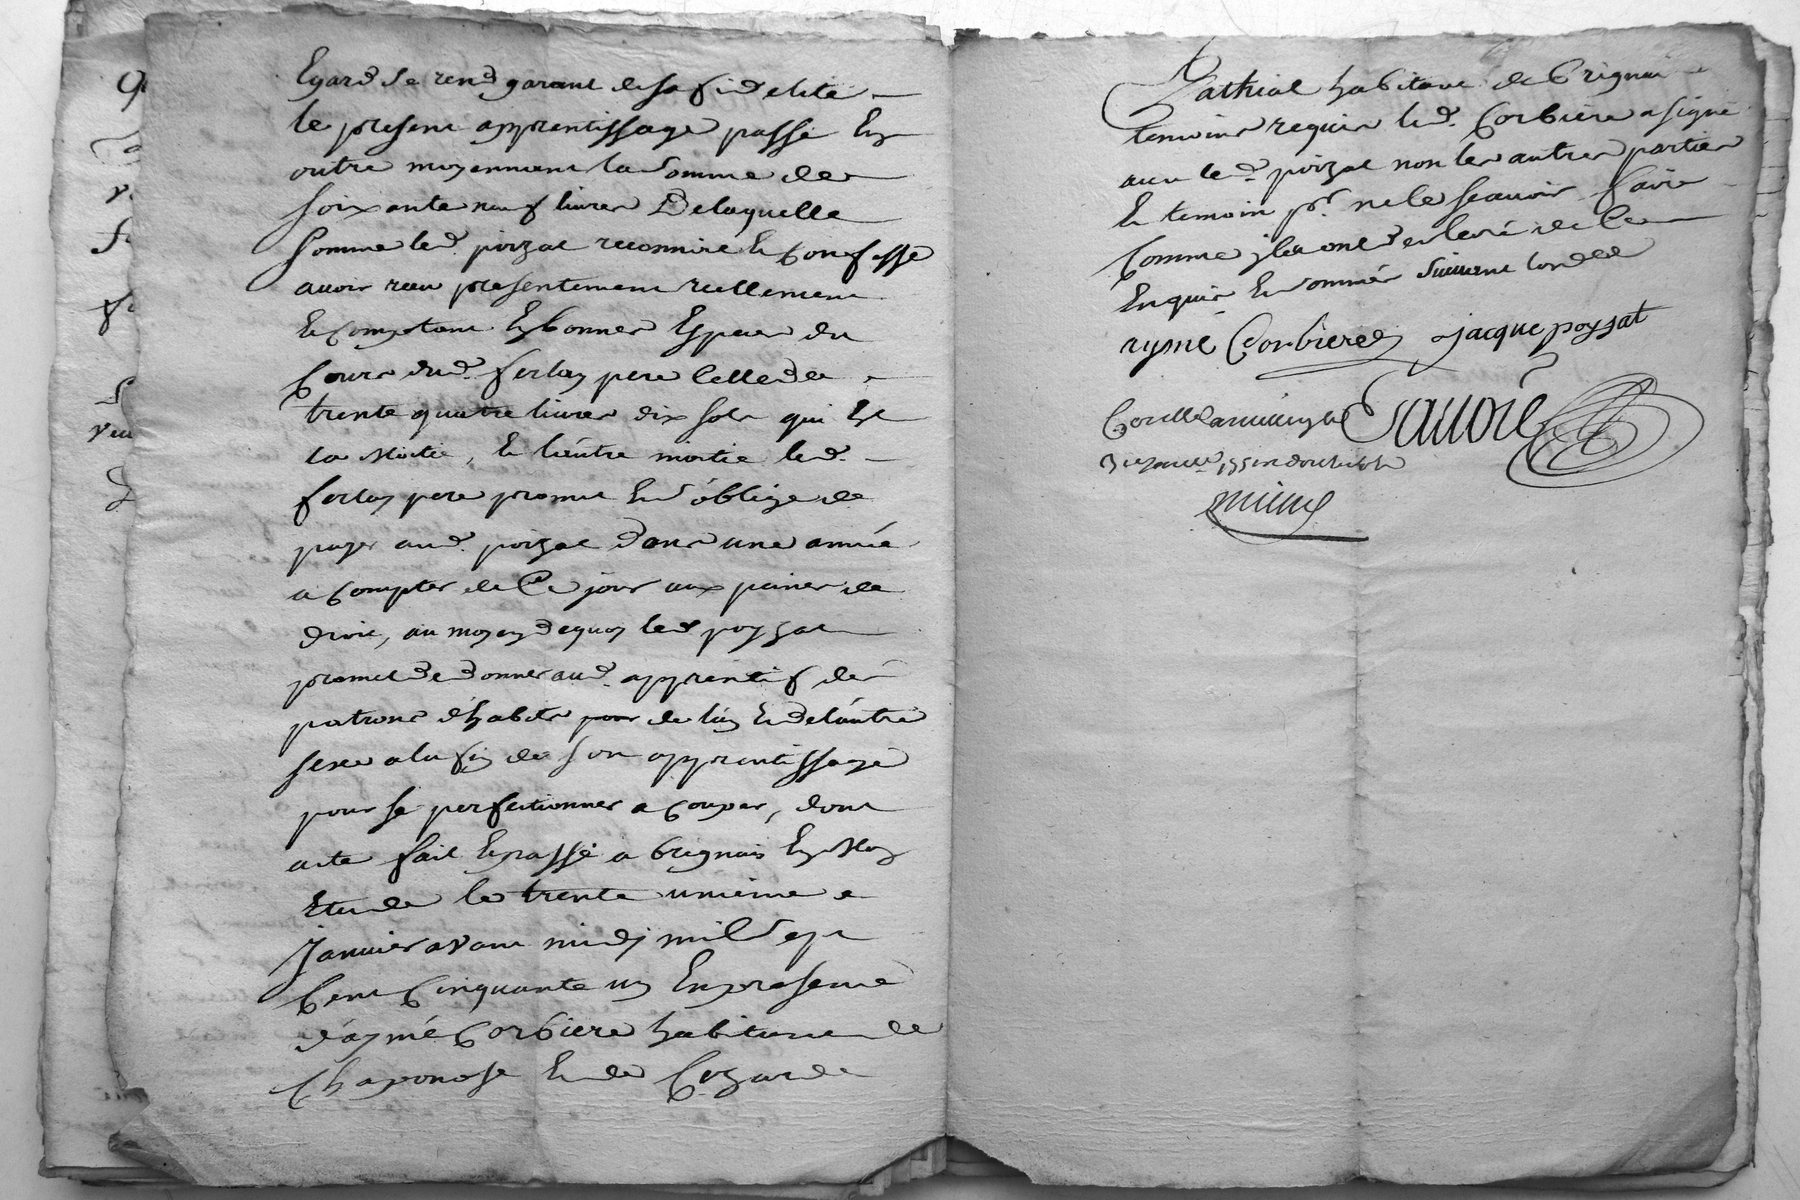 Egard se rend garant de sa fidelité
le present apprentissage passé En
outre moyennant la somme de
soixante neuf livres De laquelle
somme led. poizat reconnoit Et Confesse
avoir receu presentement reellement
Et Comptant En bonnes Especes du
Cours dud. ferlay pere Celle de
trente quatre livres dix sols qui Est
la Moitié, Et l'autre moitié led.
ferlay pere promet Et s'oblige de
payer aud. poizat Dans une année
a Compter de Ce jour aux peines de
droit, au moyen de quoy led poyzat
promet De Donner aud. apprentif des
patrons d'habits pour de l'un Et de l'autre
sexe a la fin de son apprentissage
pour se perfectionner a Couper, dont
acte fait Et passé a Brignais En Mon
Etude le trente unieme
Janvier avant midy mil sept
Cent Cinquante un En presence
d'aymé Corbiere habitant de
Chaponost Et de
Mathial habitant de Brignais
temoins requis led. Corbiere a signé
avec led. poizat non les autres parties
Et temoin pr. ne le sçavoir faire
Comme ils ont declaré de Ce
Enquis Et sommés suivant l'ord
aymé Corbiere jacque poyzat
Conllé a Savoié